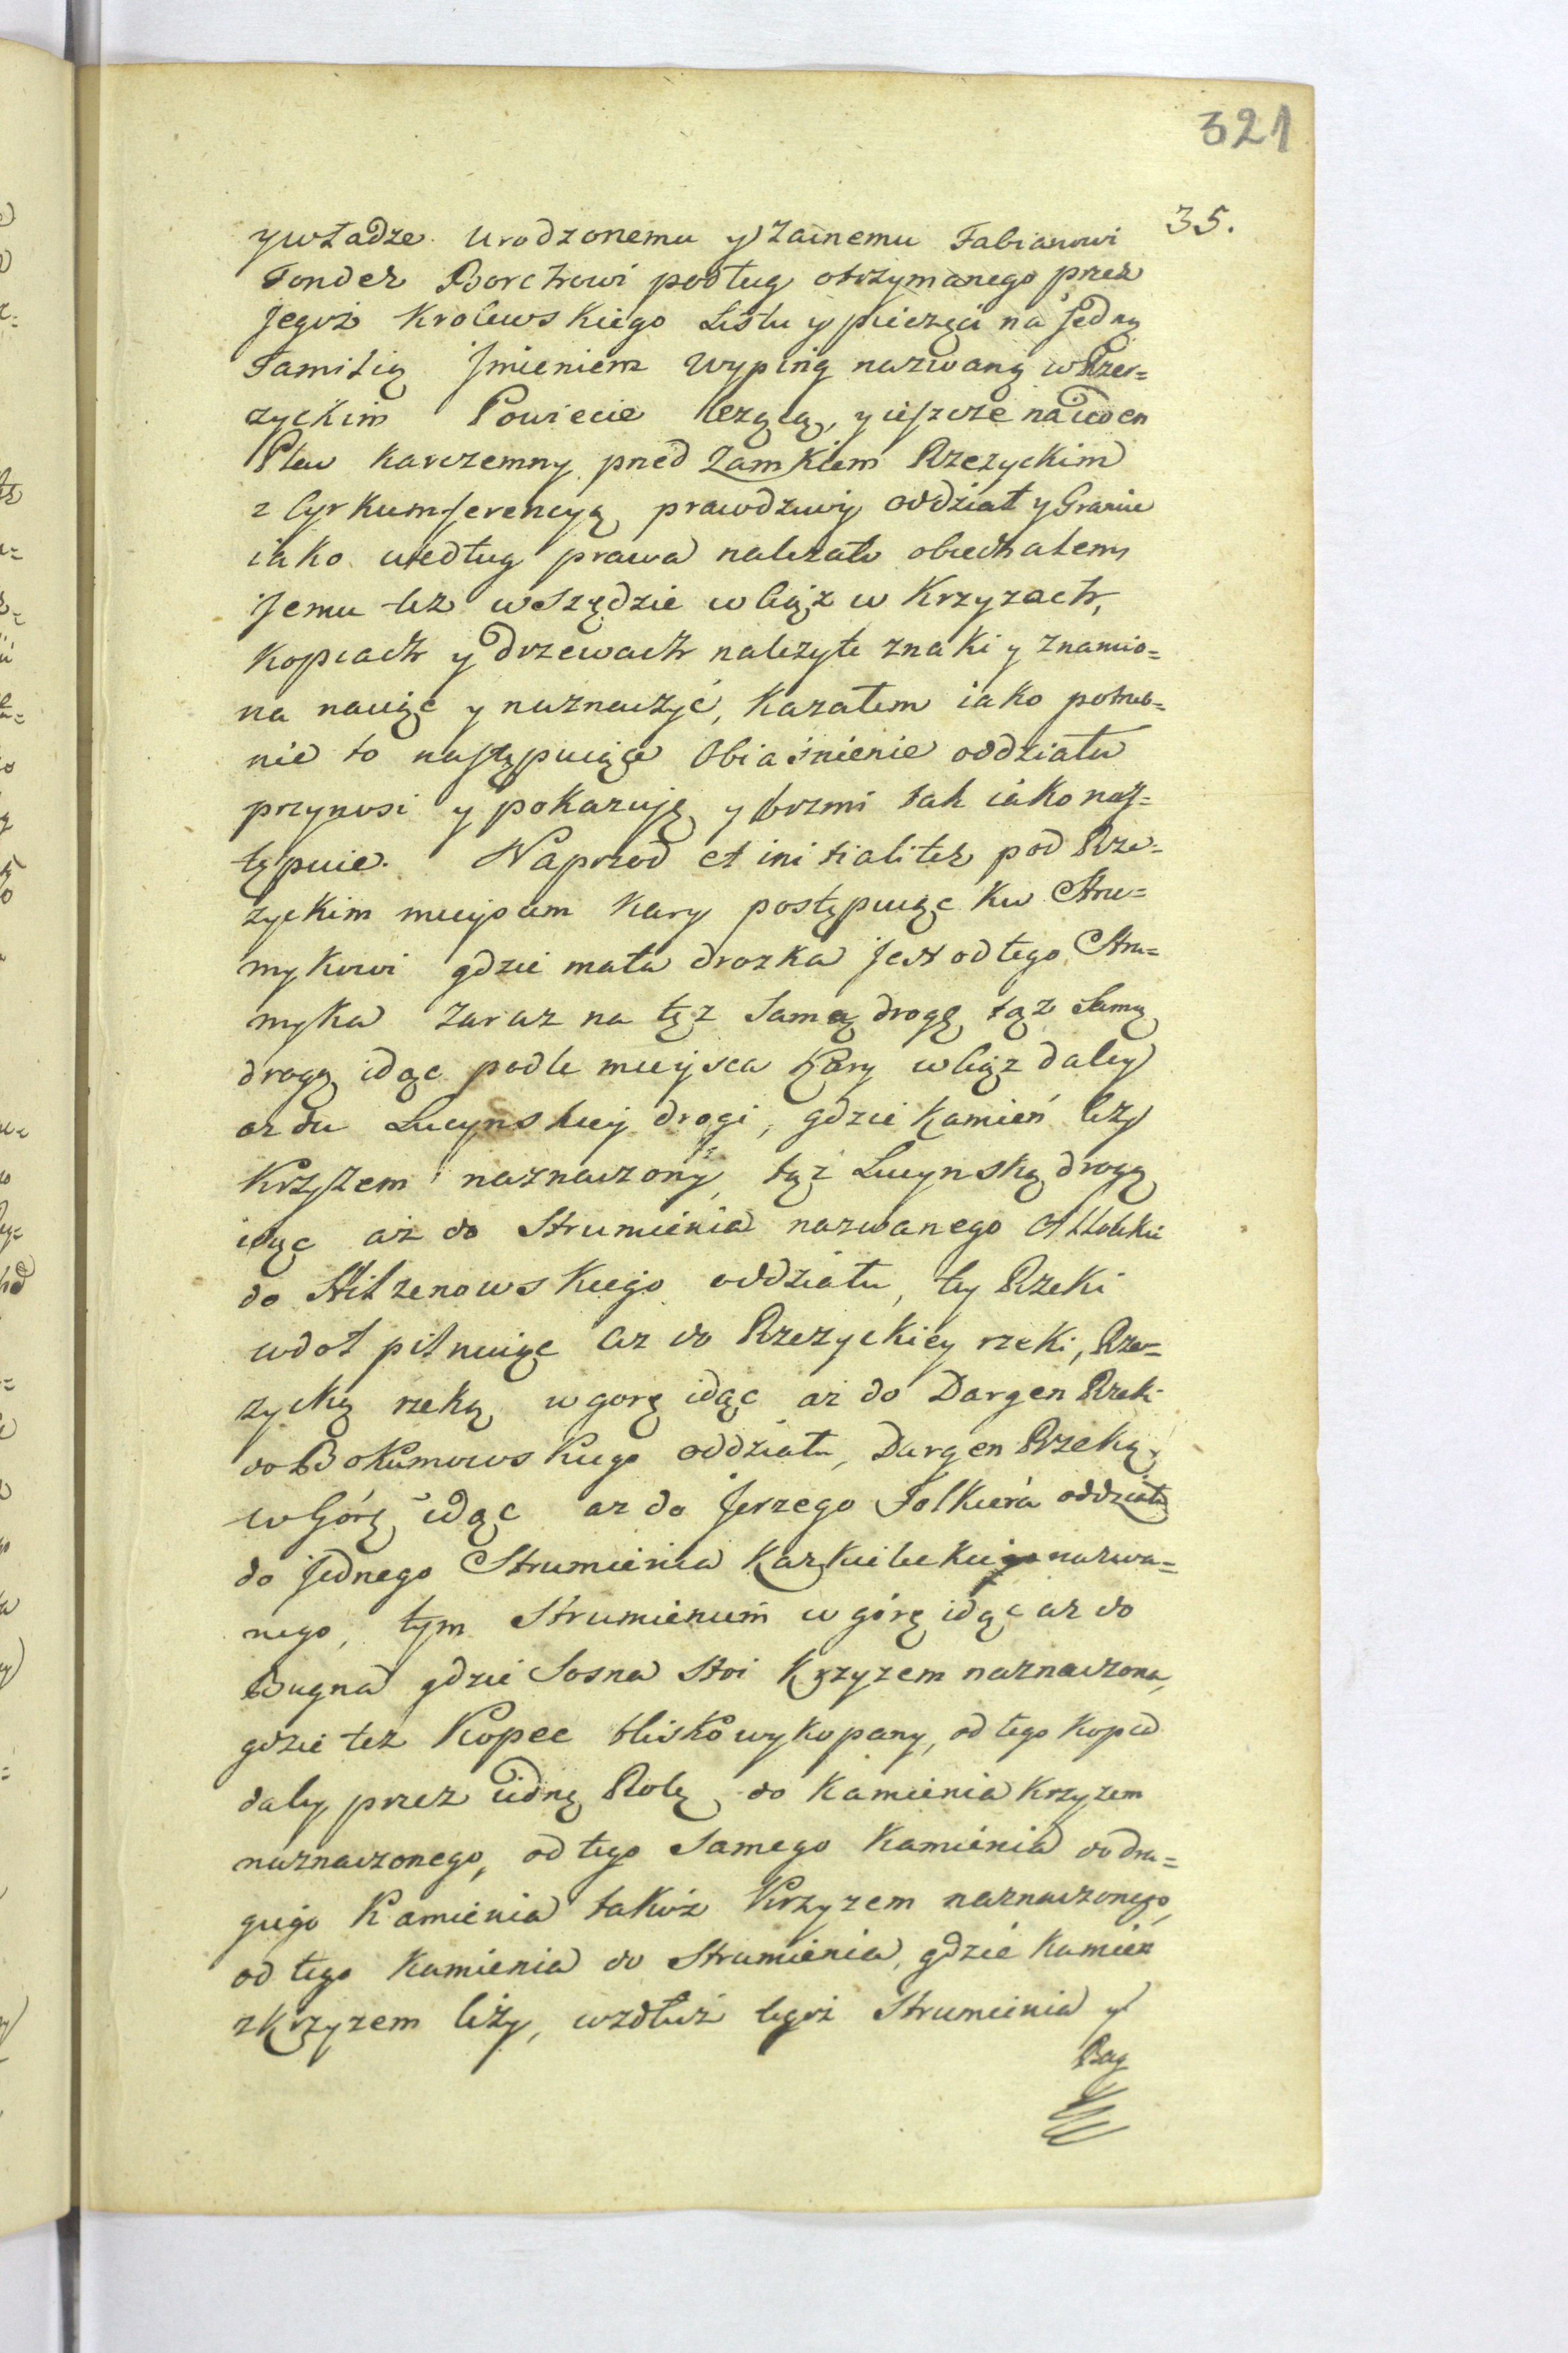 321
35.
y władze Urodzonemu y Zacnemu Fabianowi
Fonder Borchowi podług otrzymanego przez
Jegoż Krolewskiego Listu y pieczęci na jedną
Familią Jmieniem Wyping nazwaną w Rzer=
zyckim Powiecie leżącą, y ieszcze na ieden
Plac karczemny przed Zamkiem Rzezyckim
z Cyrkumferencyą prawdziwy oddział y Granice
iako według prawa należało obiechałem
Jemu też wszędzie wciąż w Krzyzach,
Kopcach y drzewach należyte znaki y znamio=
na naciąć y naznaczyć, kazałem iako potrzeb=
nie to następuiące Obiaśnienie oddziału
przynosi y pokazuję y brzmi tak iako nas=
tępuie. Naprzod et initialiter pod Rze=
zyckim mieyscem Kary postępuiąc ku Stru=
mykowi gdzie mała drozka jest od tego Stru=
myka zaraz na tęż samą drogę tąż samą
drogą idąc podle mieysca Kary wciąż daley
az do Lucynskiey drogi, gdzie kamień leży
Krzyżem naznaczony, tąż Lucynską drogą
idąc aż do Strumienia nazwanego
do Stilzenowskiego oddziału, tey Rzeki
wdoł pilnuiąc az do Rzezyckiey rzeki, Rze=
zycką rzeką w gorę idąc aż do Dargen Rzeki
do Bokumowskiego oddziału, Dargen Rzeką
w Górę idąc az do Jerzego Folkiera oddziału
do jednego Strumienia Kazkiebekiego nazwa=
nego, tym Strumieniem w górę idąc az do
Bugna gdzie Sosna stoi Krzyzem naznaczona,
gdzie też Kopec blisko wykopany, od tego kopca
daley przez iedną Rolę do Kamienia Krzyzem
naznaczonego, od tego samego Kamienia do dru=
giego Kamienia takoż Krzyzem naznaczonego,
od tego kamienia do Strumienia, gdzie kamień
z Krzyzem leży, wzdłuż tegoż Strumienia y
Bag